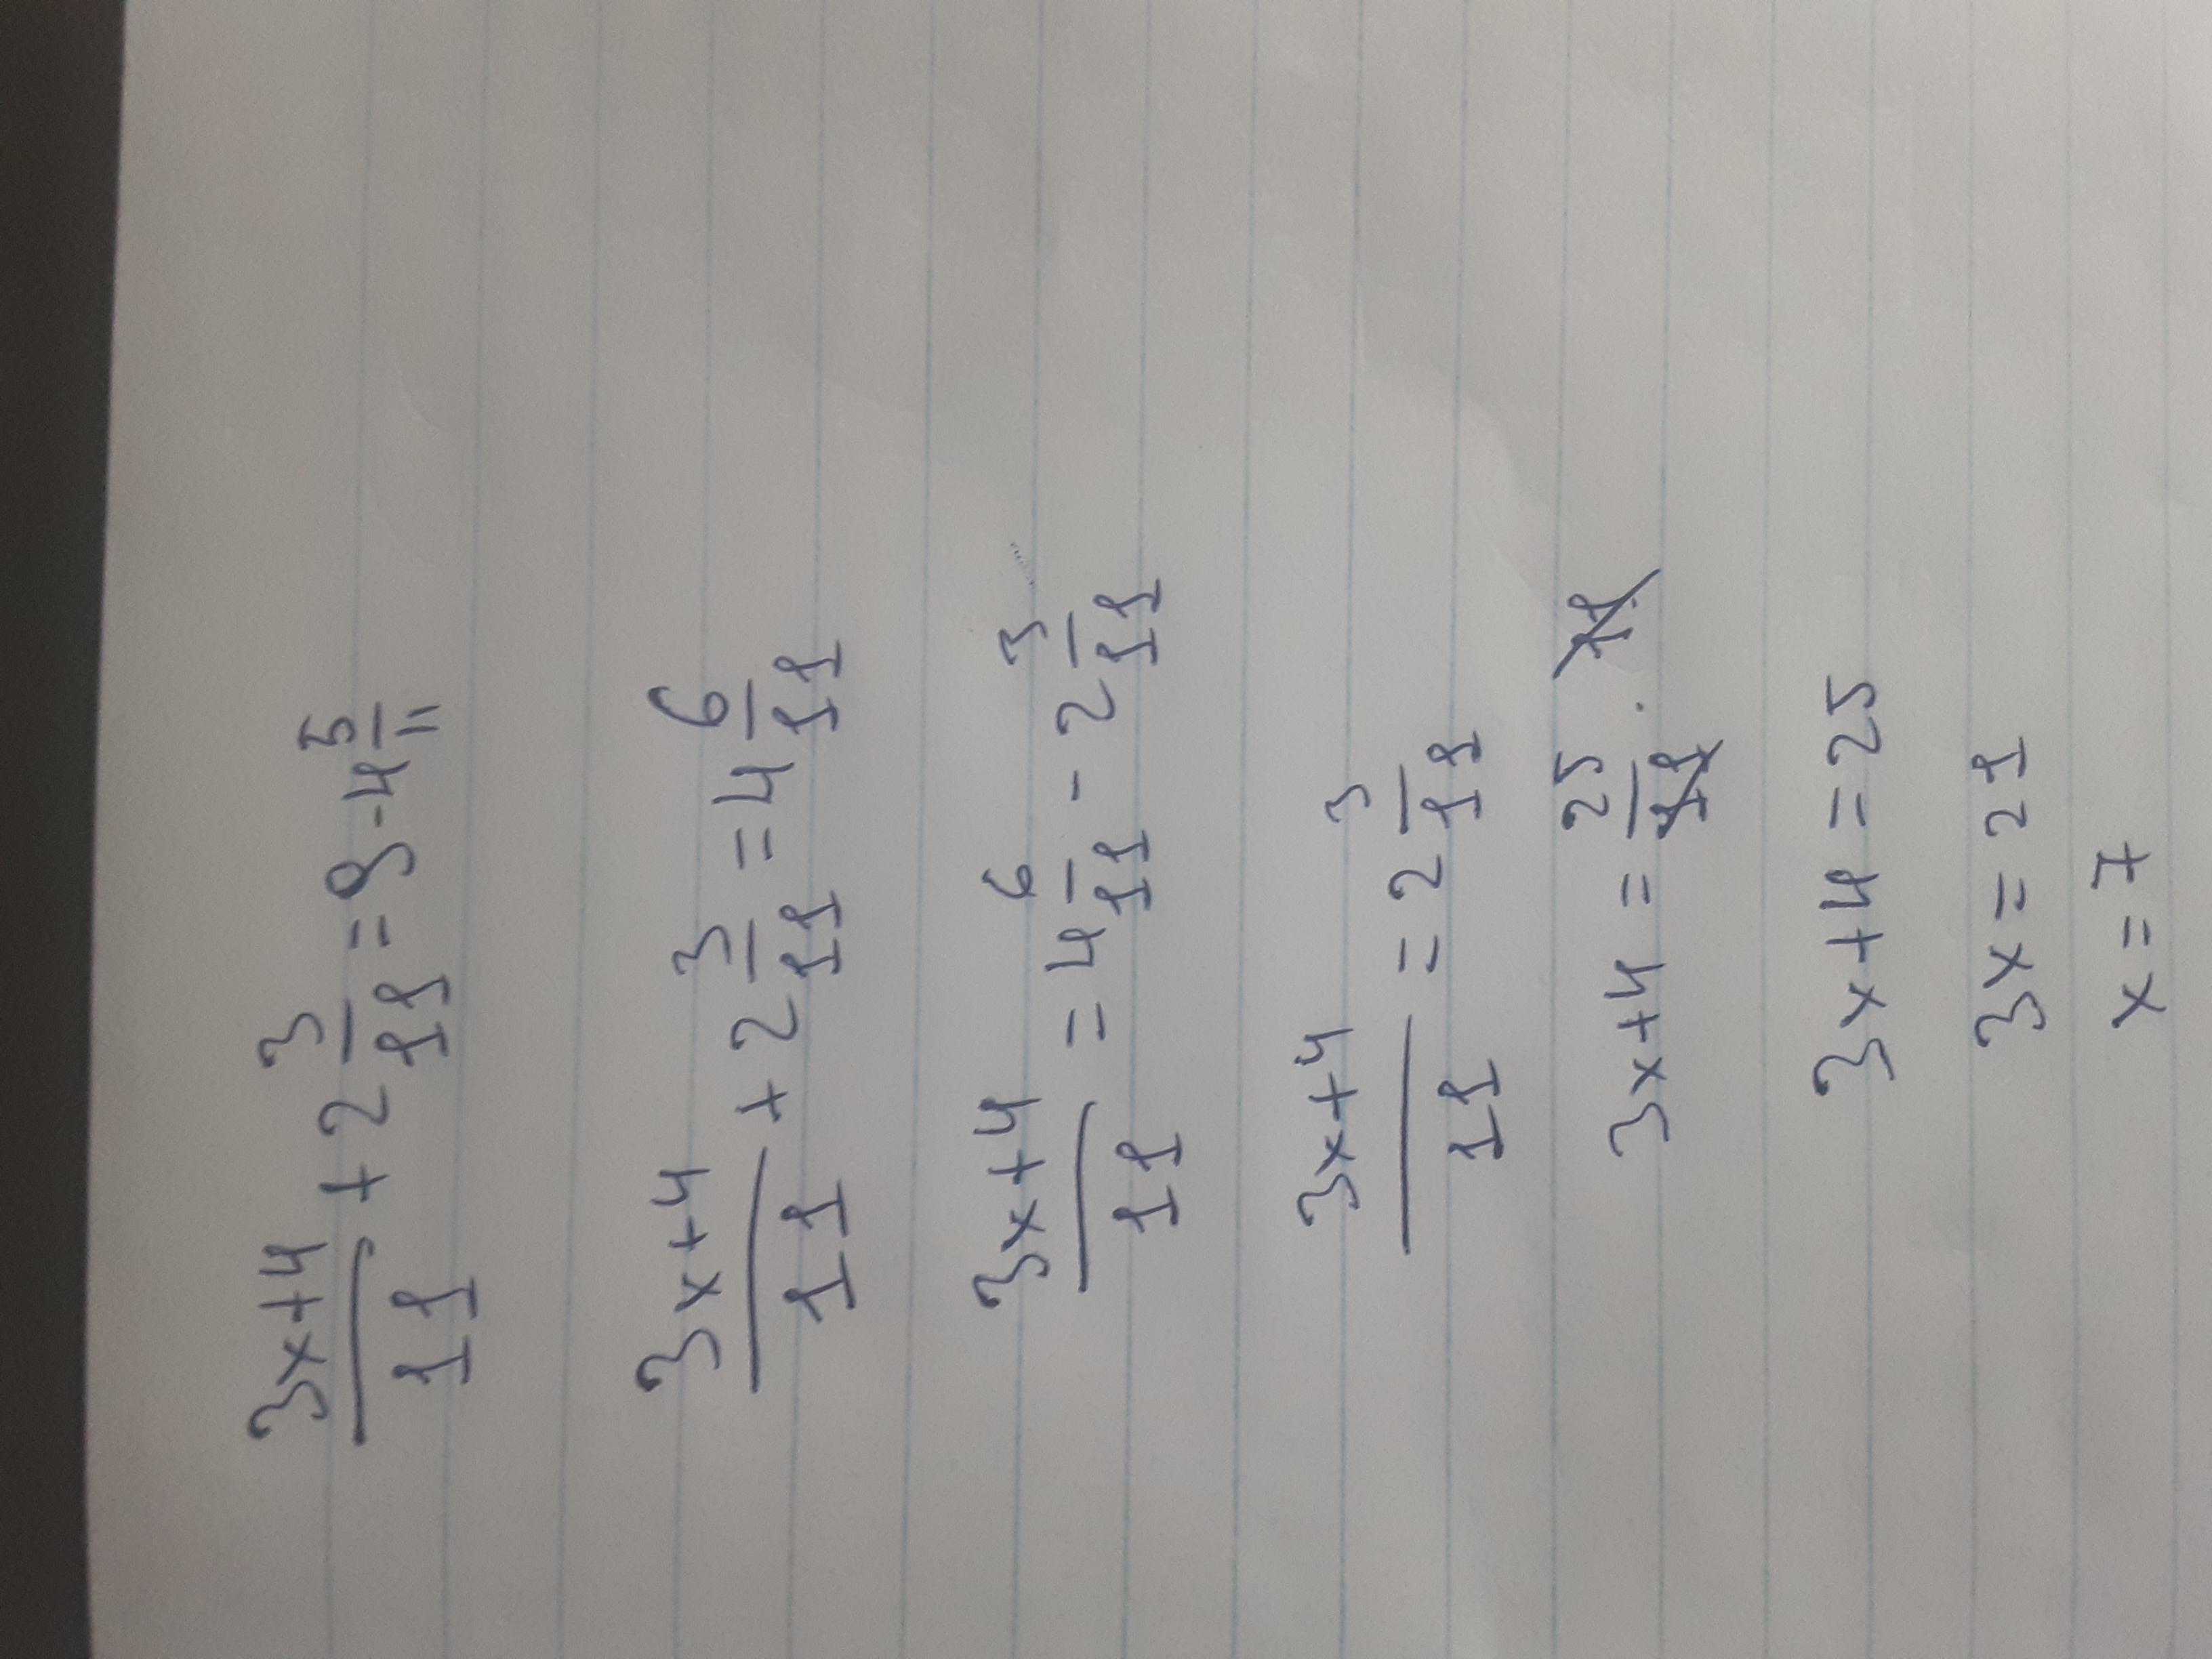 (3x+4)/11 + 2 3/11 = 9 - 4 5/11
(3x+4)/11 + 2 3/11 = 4 6/11
(3x+4)/11 = 4 6/11 - 2 3/11
(3x+4)/11 = 2 3/11
3x+4 = 25/11 · 11
3x+4 = 25
3x = 21
x = 7